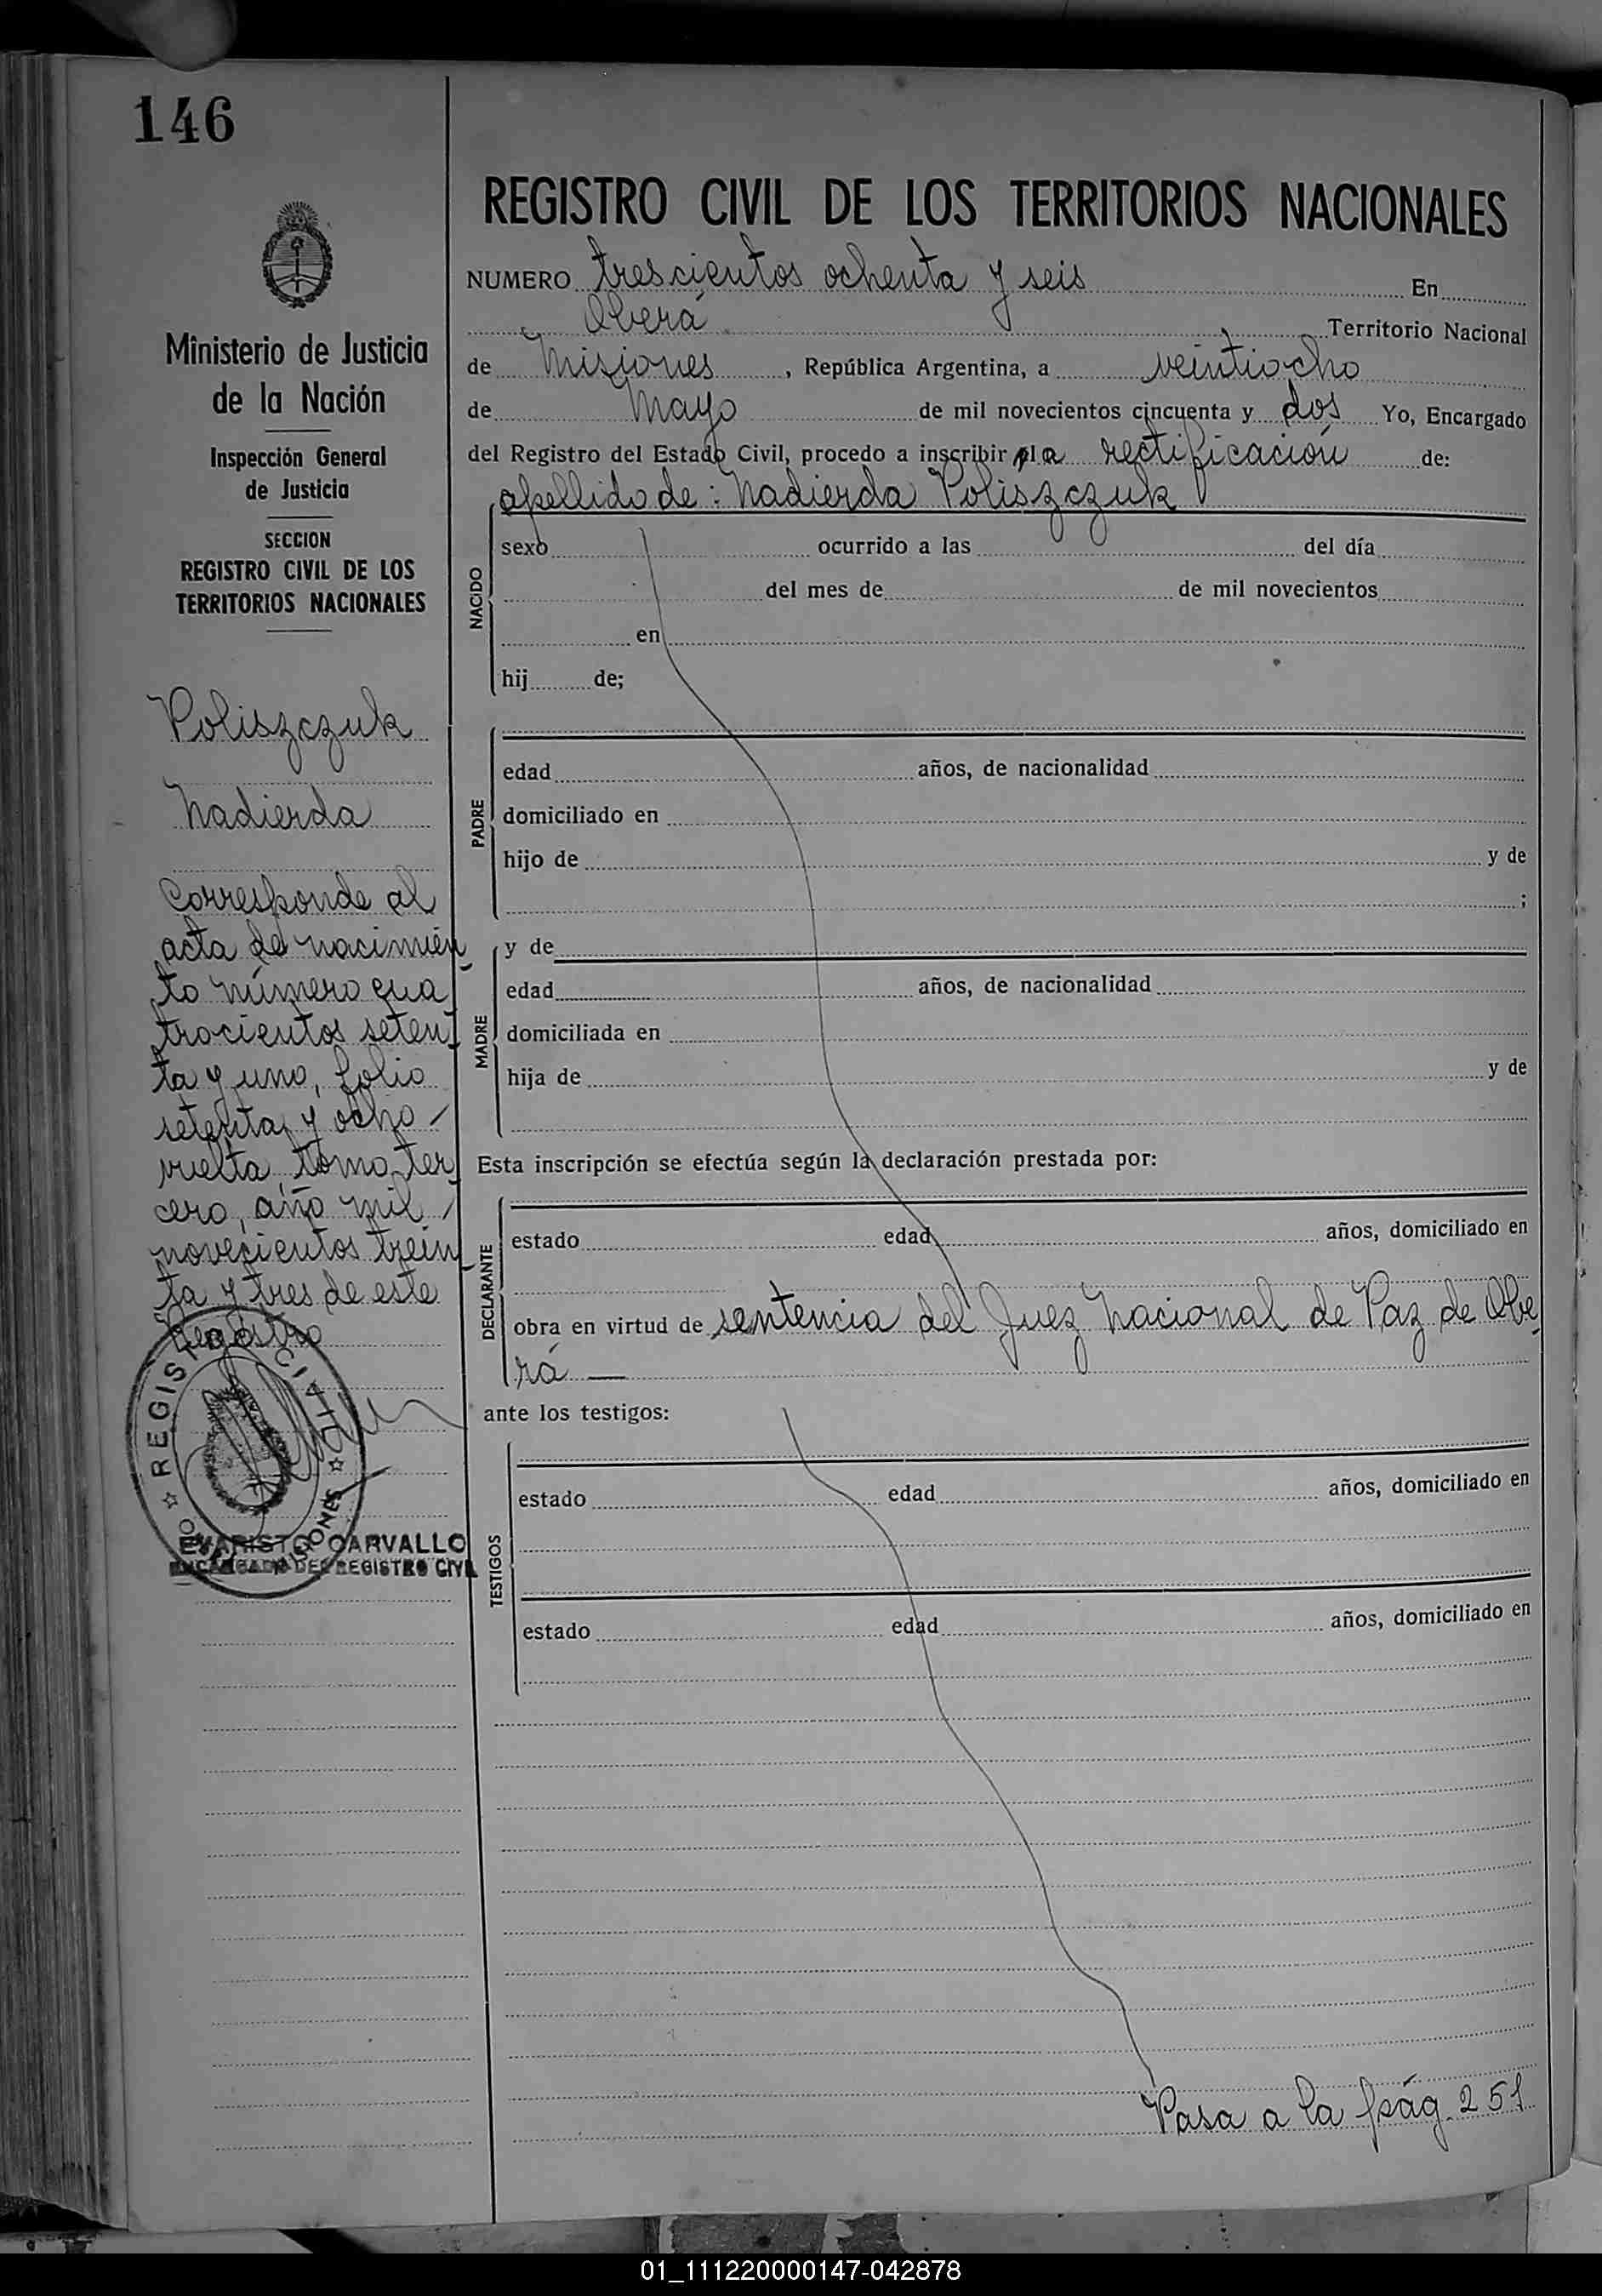 146
REGISTRO CIVIL DE LOS TERRITORIOS NACIONALES
NUMERO trescientos ochenta y seis En
Oberá Territorio Nacional
de Misiones, República Argentina, a veintiocho
de Mayo de mil novecientos cincuenta y dos Yo, Encargado
del Registro del Estado Civil, procedo a inscribir la rectificación de:
apellido de: Nadierda Poliszczuk
NACIDO
sexo ocurrido a las del día
del mes de de mil novecientos
en
hij de;
PADRE
edad años, de nacionalidad
domiciliado en
hijo de y de
;
MADRE
y de
edad años, de nacionalidad
domiciliada en
hija de y de
Esta inscripción se efectúa según la declaración prestada por:
DECLARANTE
estado edad años, domiciliado en
obra en virtud de sentencia del Juez Nacional de Paz de Obe
rá —
ante los testigos:
TESTIGOS
estado edad años, domiciliado en
estado edad años, domiciliado en
Pasa a la pág. 251
Ministerio de Justicia
de la Nación
Inspección General
de Justicia
SECCION
REGISTRO CIVIL DE LOS
TERRITORIOS NACIONALES
Poliszczuk
Nadierda
Corresponde al
acta de nacimien-
to número cua
trocientos seten-
ta y uno, folio
setenta y ocho
vuelta, tomo ter-
cero, año mil
novecientos trein-
ta y tres de este
Registro
REGISTRO CIVIL
MISIONES
EVARISTO CARVALLO
ENCARGADO DEL REGISTRO CIVIL
01_111220000147-042878